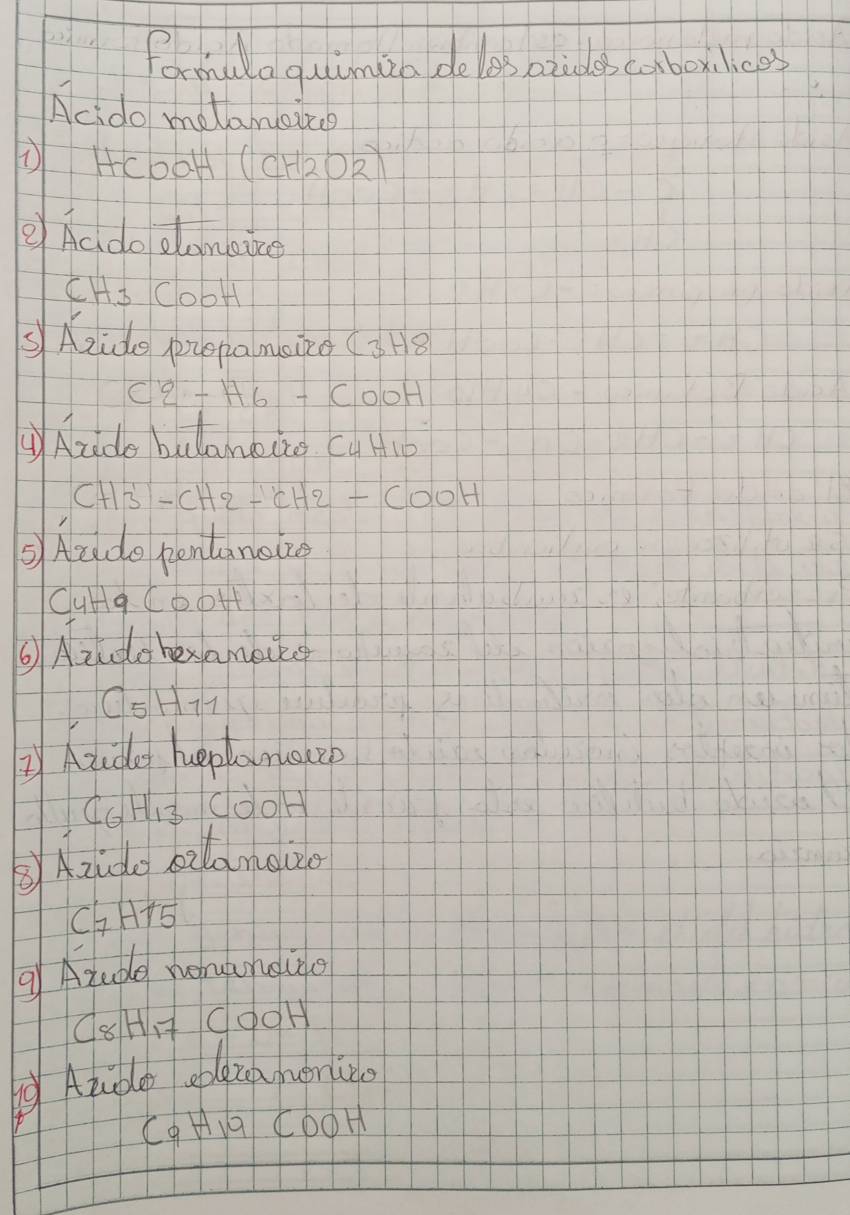 Formula quimica de los azidos carboxilicos
Ácido metanoico
1) HCOOH (CH2O2)
2) Ácido etanoico
CH3 COOH
3) Ázido propanoico C3H8
C2 - H6 - COOH
4) Ázido butanoico C4H10
CH3 - CH2 - CH2 - COOH
5) Ázido pentanoico
C4H9 COOH
6) Ázido hexanoico
C5H11
7) Ázido heptanoico
C6H13 COOH
8) Ázido oztanoico
C7H15
9) Ázido nonanoico
C8H17 COOH
10) Azido
C9H19 COOH